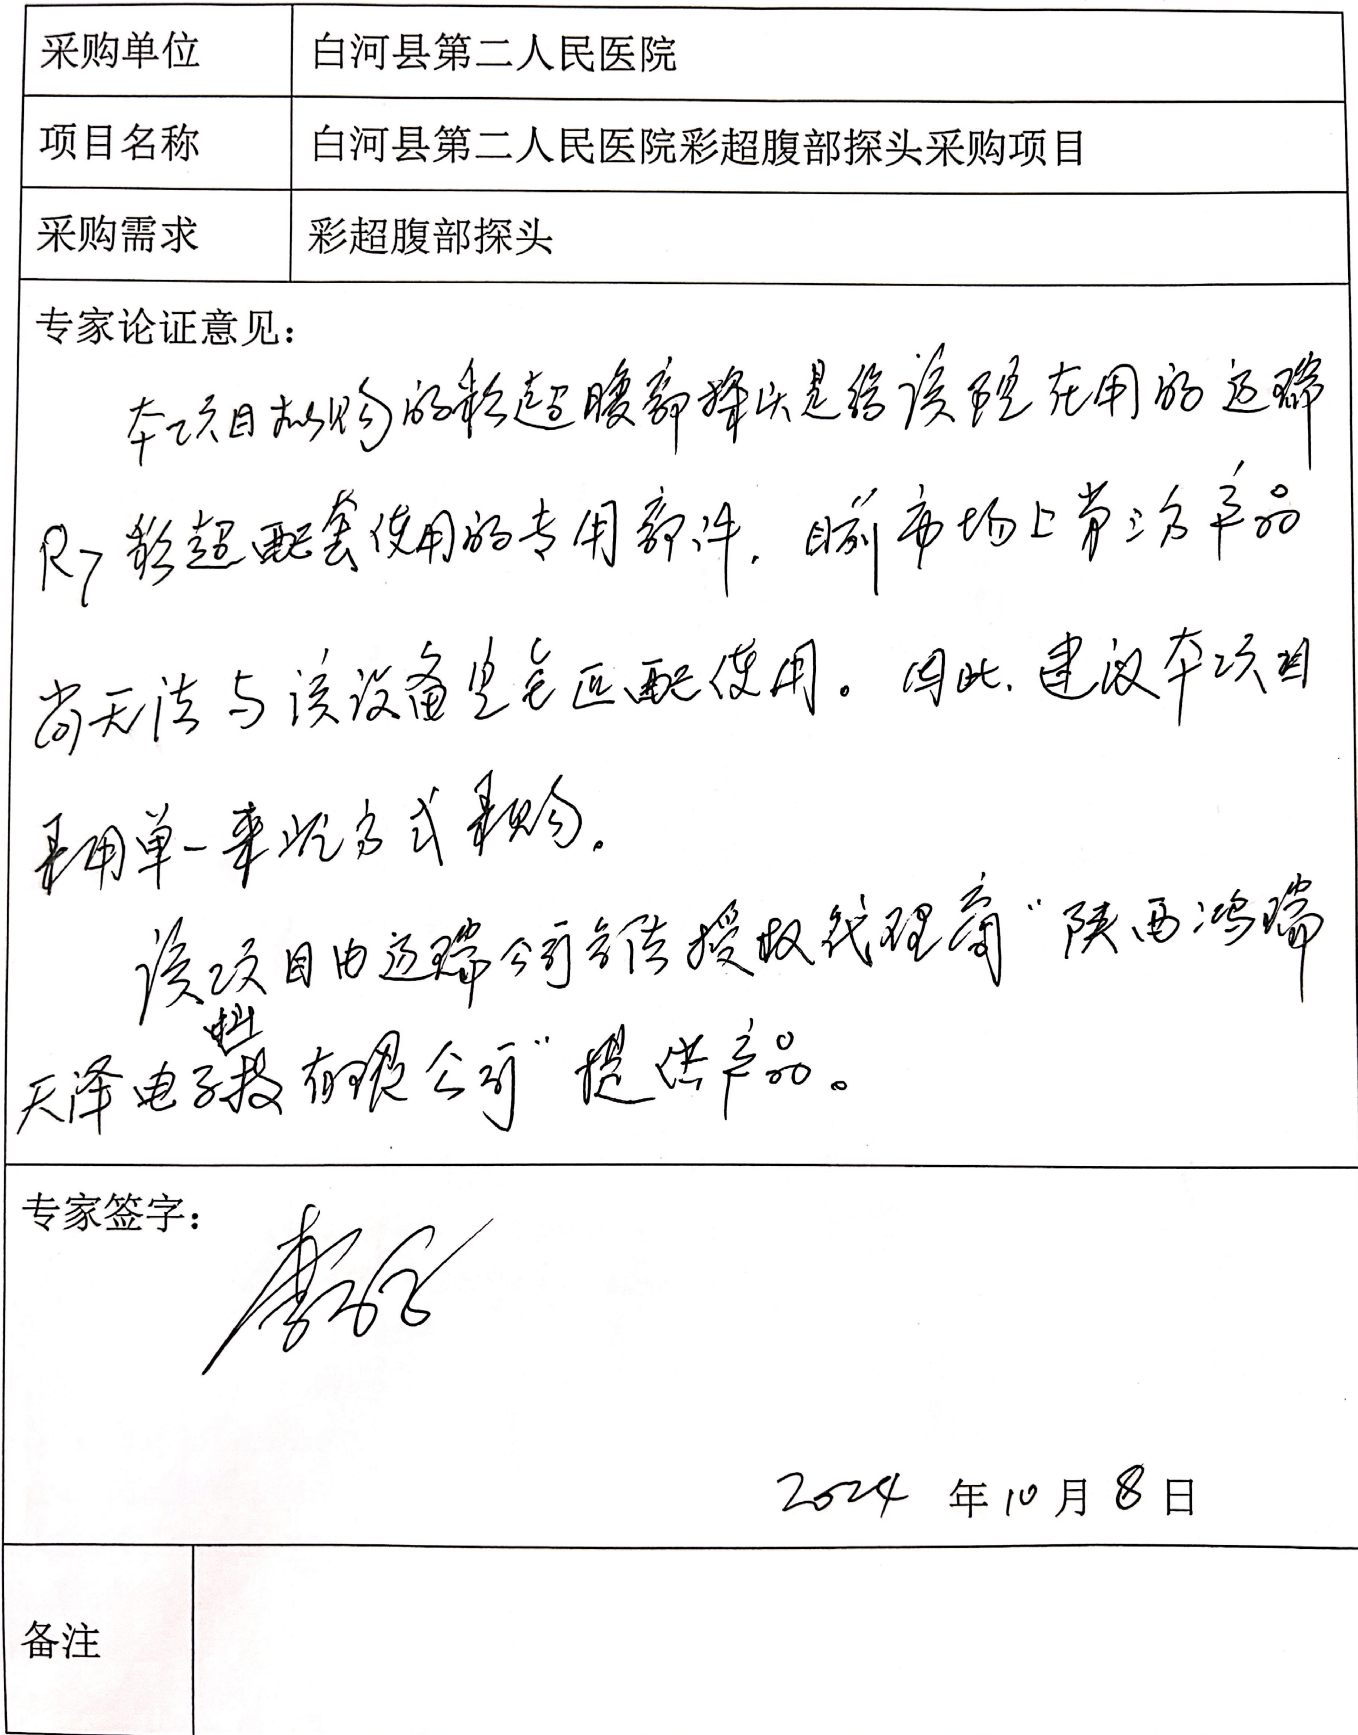 采购单位 白河县第二人民医院
项目名称 白河县第二人民医院彩超腹部探头采购项目
采购需求 彩超腹部探头
专家论证意见：
本项目拟购的彩超腹部探头是给该院在用的迈瑞
R7彩超配套使用的专用部件，目前市场上第三方产品
尚无法与该设备完全匹配使用。因此，建议本项目
采用单一来源方式采购。
该项目由迈瑞公司合法授权代理商“陕西鸿瑞
天泽电子科技有限公司”提供产品。
专家签字：
2024 年 10 月 8 日
备注